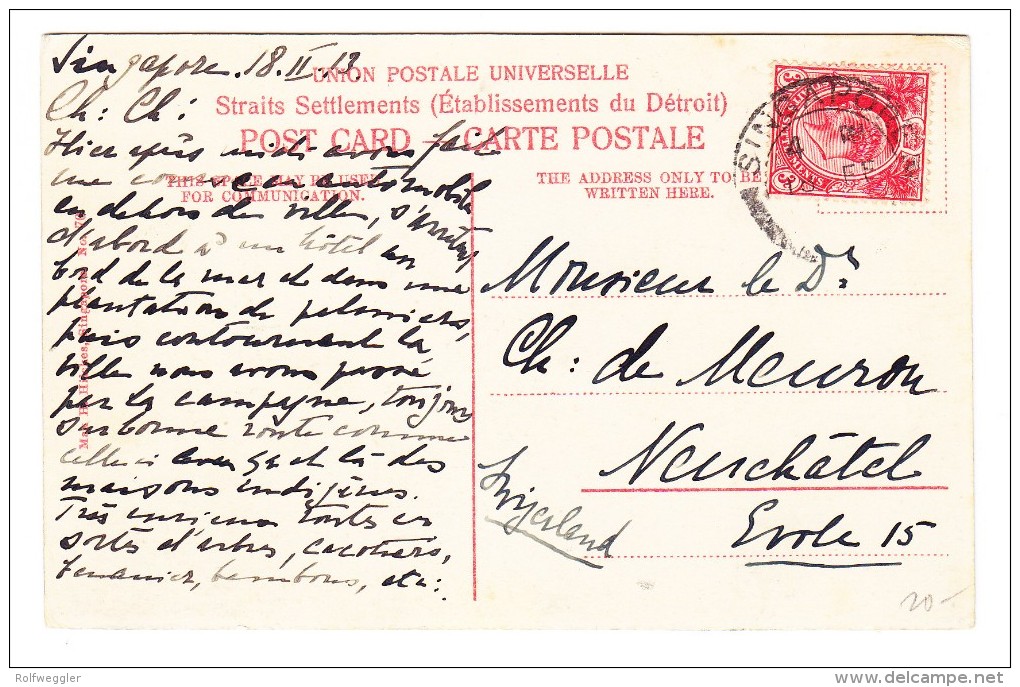 Singapore. 18. II. 13
Ch: Ch:
Hier après midi avons fait
une course en automobile
en dehors de ville, s'
d'abord à un hôtel au
bord de la mer et dans une
plantation de palmiers,
puis contournant la
ville nous avons passé
par la campagne, toujours
sur bonne route comme
celle ci avec çà et là des
maisons indigènes.
Très curieux toutes ces
sortes d'arbres, cocotiers,
bananier, bambous, etc:
UNION POSTALE UNIVERSELLE
Straits Settlements (Établissements du Détroit)
POST CARD — CARTE POSTALE
THIS SPACE MAY BE USED
FOR COMMUNICATION.
THE ADDRESS ONLY TO BE
WRITTEN HERE.
Singapore No. 70
SINGAPORE
3 CENTS 3
Monsieur le Dr
Ch: de Meuron
Neuchâtel
Evole 15
Swizerland
20-
Rolfweggler
delcampe.net